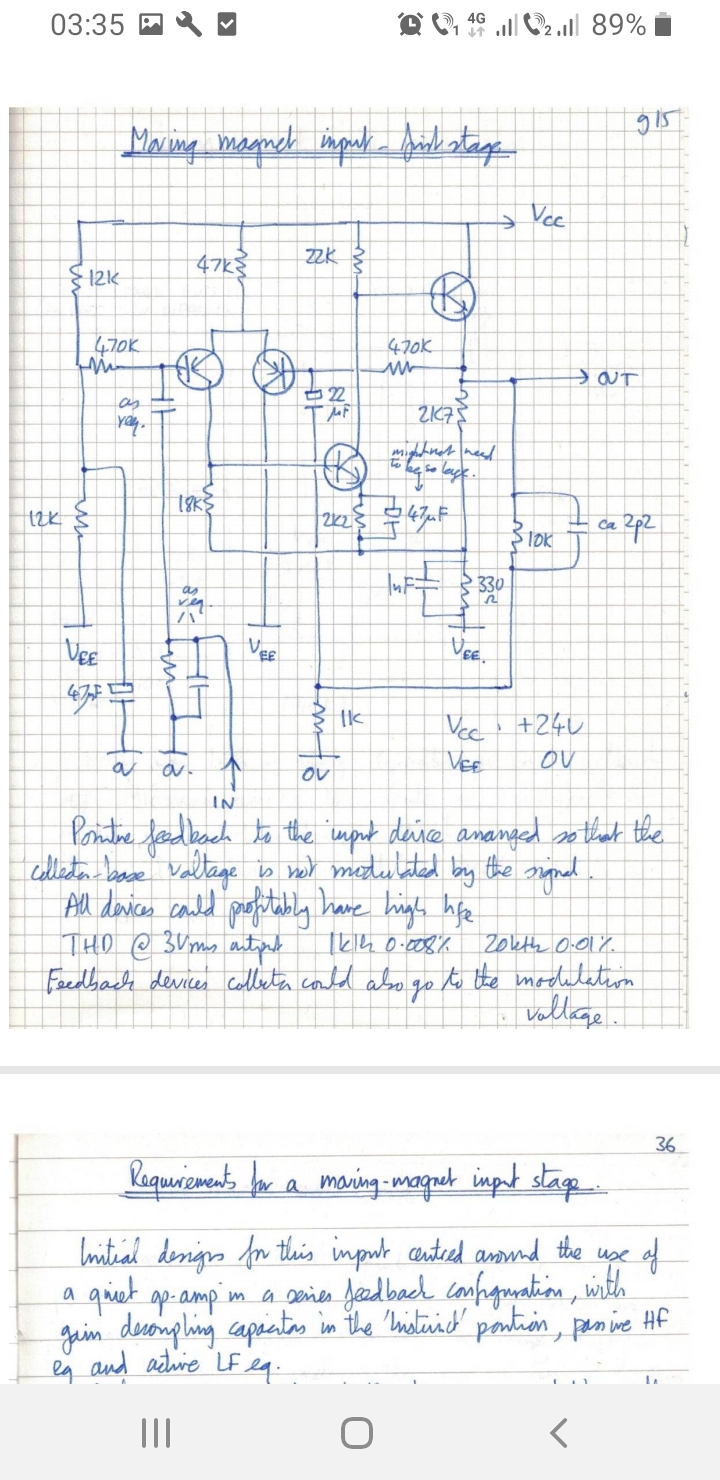 03:35
4G
89%
g15
Moving magnet input - first stage
Vcc
12K
47K
22K
470K
470K
OUT
as
req.
22
µF
2K7
might not need
to be so large.
18K
2K2
47µF
12K
10K
ca 2p2
1nF
330
Ω
as
req.
VEE
VEE
VEE.
47µF
1K
Vcc . +24V
VEE 0V
a
a.
0V
IN
Positive feedback to the input device arranged so that the
collector-base voltage is not modulated by the signal.
All devices could profitably have high hfe
THD @ 3Vrms output 1kHz 0.008% 20kHz 0.01%.
Feedback devices' collector could also go to the modulation
voltage.
36
Requirements for a moving-magnet input stage.
Initial designs for this input centred around the use of
a quiet op-amp in a series feedback configuration, with
gain decoupling capacitor in the position, passive HF
eq and active LF eq.